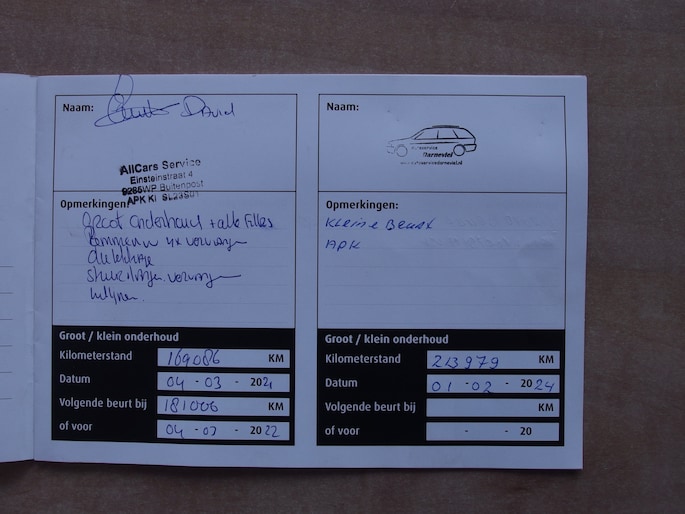 Naam: David
AllCars Service
Einsteinstraat 4
9285WP Buitenpost
APK KI SL23S01
Opmerkingen:
Groot onderhoud + alle Filters
4x vervangen
vervangen
Groot / klein onderhoud
Kilometerstand 169086 KM
Datum 04 - 03 - 2021
Volgende beurt bij 181006 KM
of voor 04 - 03 - 2022
Naam:
Autoservice
Darnestel
Opmerkingen:
Kleine Beurt
APK
Groot / klein onderhoud
Kilometerstand 213979 KM
Datum 01 - 02 - 2024
Volgende beurt bij KM
of voor - - 20